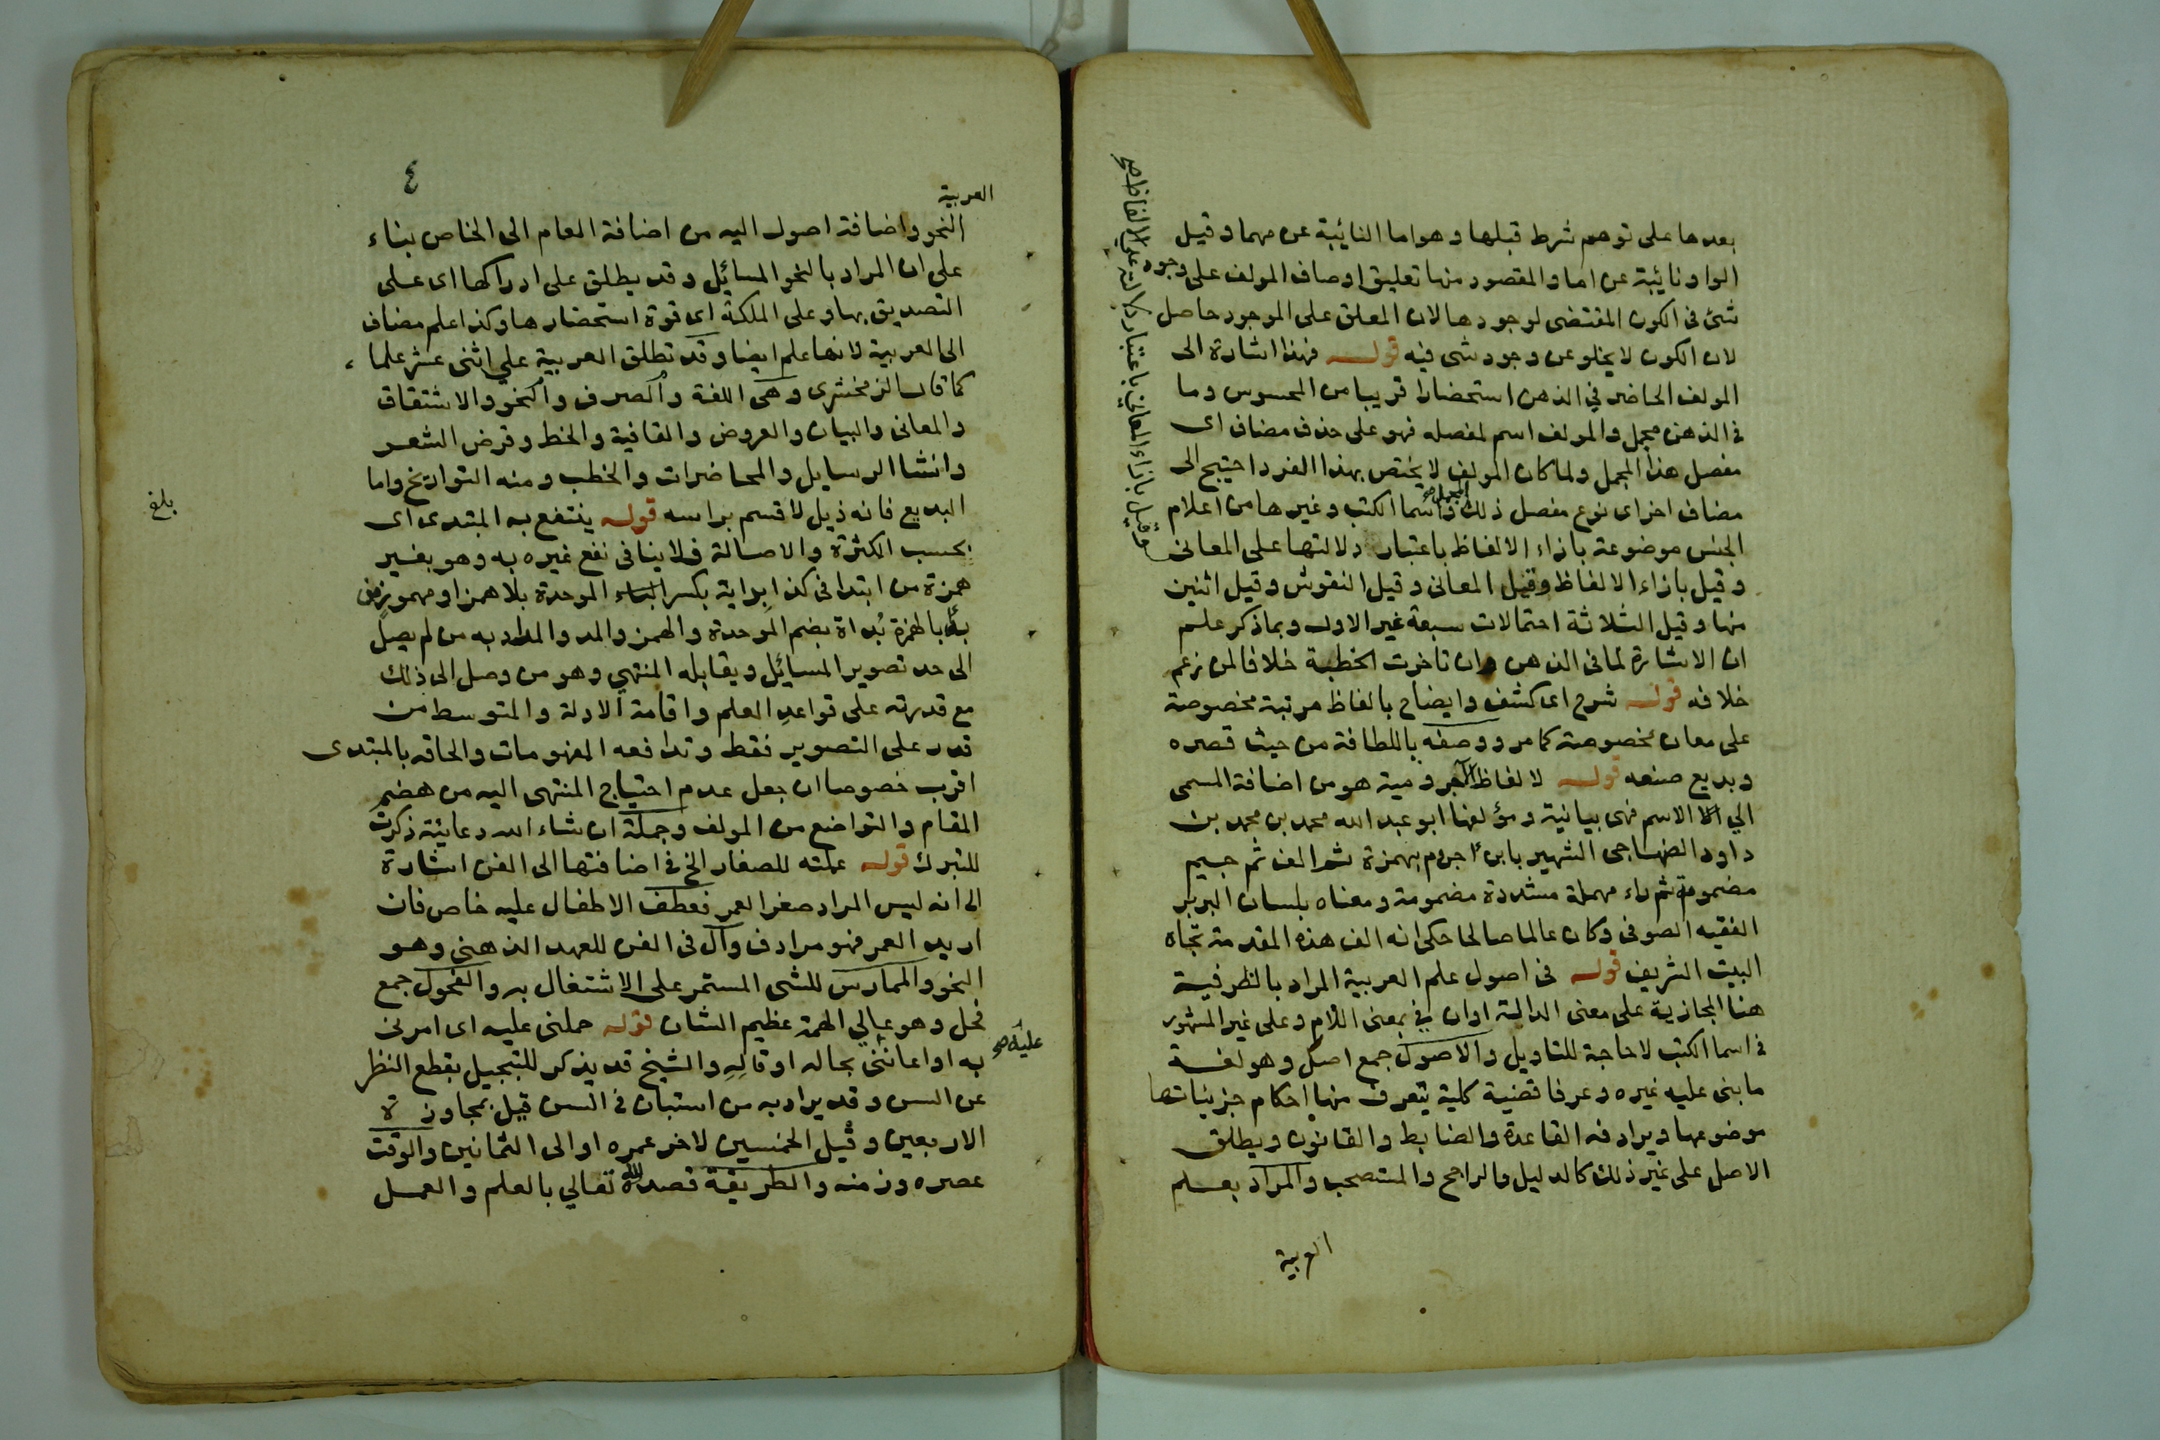 بعدها على توهم شرط قبلها وهو اما النائبة عن مهما وقيل
الواو نائبة عن اما والمقصود منها تعليق اوصاف المولف على وجود
شئ في الكون المقتضى لوجودها لان المعلق على الموجود حاصل
لان الكون لا يخلو عن وجود شى فيه قوله فهذا اشارة الى
المولف الحاضر في الذهن استحضارا قريبا من المحسوس وما
في الذهن مجمل والمولف اسم لمفصله فهو على حذف مضاف اى
مفصل هذا المجمل ولما كان المولف لا يختص بهذا الفرد احتيج الى
مضاف اخر اى نوع مفصل ذلك المجمل صح واسما الكتب وغيرها من اعلام
الجنس موضوعة بازاء الالفاظ باعتبار دلالتها على المعانى
وقيل بازاء الالفاظ وقيل المعانى وقيل النقوش وقيل اثنين
منها وقيل الثلاثة احتمالات سبعة غير الاول وبما ذكر علم
ان الاشارة لما في الذهن وان تاخرت الخطبة خلافا لمن زعم
خلافه قوله شرح اى كشف وايضاح بالفاظ مرتبة مخصوصة
على معان مخصوصة كما مر ووصفه باللطافة من حيث قصره
وبديع صنعه قوله لالفاظ الاجرومية هو من اضافة المسمى
الي الاسم فهى بيانية ومؤلفها ابو عبد الله محمد بن محمد بن
داود الصنهاجى الشهير بابن اجروم بهمزة ثم الف ثم جيم
مضمومة ثم راء مهملة مشددة مضمومة ومعناه بلسان البربر
الفقيه الصوفى وكان عالما صالحا حكى انه الف هذه المقدمة تجاه
البيت الشريف قوله في اصول علم العربية المراد بالظرفية
هنا المجازية على معنى الدالة او ان في بمعنى اللام وعلى غير المشهور
في اسما الكتب لا حاجة للتاويل والاصول جمع اصل وهو لغة
ما بنى عليه غيره وعرفا قضية كلية يتعرف منها احكام جزئياتها
موضوعها ويرادفه القاعدة والضابط والقانون ويطلق
الاصل على غير ذلك كالدليل والراجح والمستصحب والمراد بعلم
العربية
وقيل بازاء المعاني باعتبار دلالة علي الالفاظ صح
٤
العربية
النحو واضافة اصول اليه من اضافة العام الى الخاص بناء
على ان المراد بالنحو المسائل وقد يطلق على ادراكها اى على
التصديق بها وعلى الملكة اى قوة استحضارها وكذا علم مضاف
الى العربية لانها علم ايضا وقد تطلق العربية علي اثنى عشر علما
كما قال الزمخشرى وهى اللغة والصرف والنحو والاشتقاق
والمعانى والبيان والعروض والقافية والخط وقرض الشعر
وانشا الرسايل والمحاضرات والخطب ومنه التواريخ واما
البديع فانه ذيل لا قسم براسه قوله ينتفع به المبتدى اى
بحسب الكثرة والاصالة فلا ينافى نفع غيره به وهو بغير
همزة من ابتدا فى كذا بداية بكسر الباء الموحدة بلا همز او مهموز من
بدأ بالهمزة بُداة بضم الموحدة والهمز والمد والمراد به من لم يصل
الى حد تصوير المسائل ويقابله المنتهي وهو من وصل الى ذلك
مع قدرته على قواعد العلم واقامة الادلة والمتوسط من
قدر على التصوير فقط وتدافعه المفهومات والحاقه بالمبتدى
اقرب خصوصا ان جعل عدم احتياج المنتهى اليه من هضم
المقام والتواضع من المولف وجملة ان شاء الله دعائية ذكرت
للتبرك قوله عملته للصغار الخ في اضافتها الى الفن اشارة
الى انه ليس المراد صغر العمر فعطف الاطفال عليه خاص فان
اريد العمر فهو مرادف وآل فى الفن للعهد الذهنى وهو
النحو والممارس للشى المستمر على الاشتغال به والفحول جمع
فحل وهو عالي الهمة عظيم الشان قوله حملنى عليه اى امرنى
به او اعاننى عليه صح بحاله او قالِهِ والشيخ قد يذكر للتبجيل بقطع النظر
عن السن وقد يراد به من استبان فى السن قيل بمجاوزة
الاربعين وقيل الخمسين لاخر عمره او الى الثمانين والوقت
عصره وزمنه والطريقة قصد الله تعالي بالعلم والعمل
بلغ